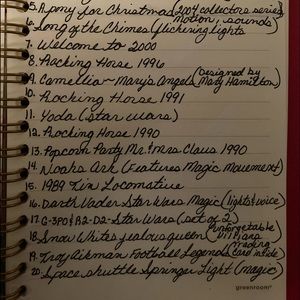 5. A Pony for Christmas (2004 collectors series
Motion, sounds)
6. Song of the Chimes (flickering lights
7. Welcome to 2000
8. Rocking Horse 1996
9. Camellia ~ Mary's Angels (Designed by
Mary Hamilton)
10. Rocking Horse 1991
11. Yoda (Star wars)
12. Rocking Horse 1990
13. Popcorn Party Mr. + Mrs. Claus 1990
14. Noahs Ark (Features Magic Movement)
15. 1989 Tin Locomotive
16. Darth Vader Star Wars Magic (light & voice)
17. C-3PO & R2-D2 - Star Wars (set of 2)
18. Snow Whites jealous queen (Unforgetable
Villians
19. Troy Aikman Football Legends (trading
card inside)
20. Space shuttle Springer Light (magic)
greenroom®